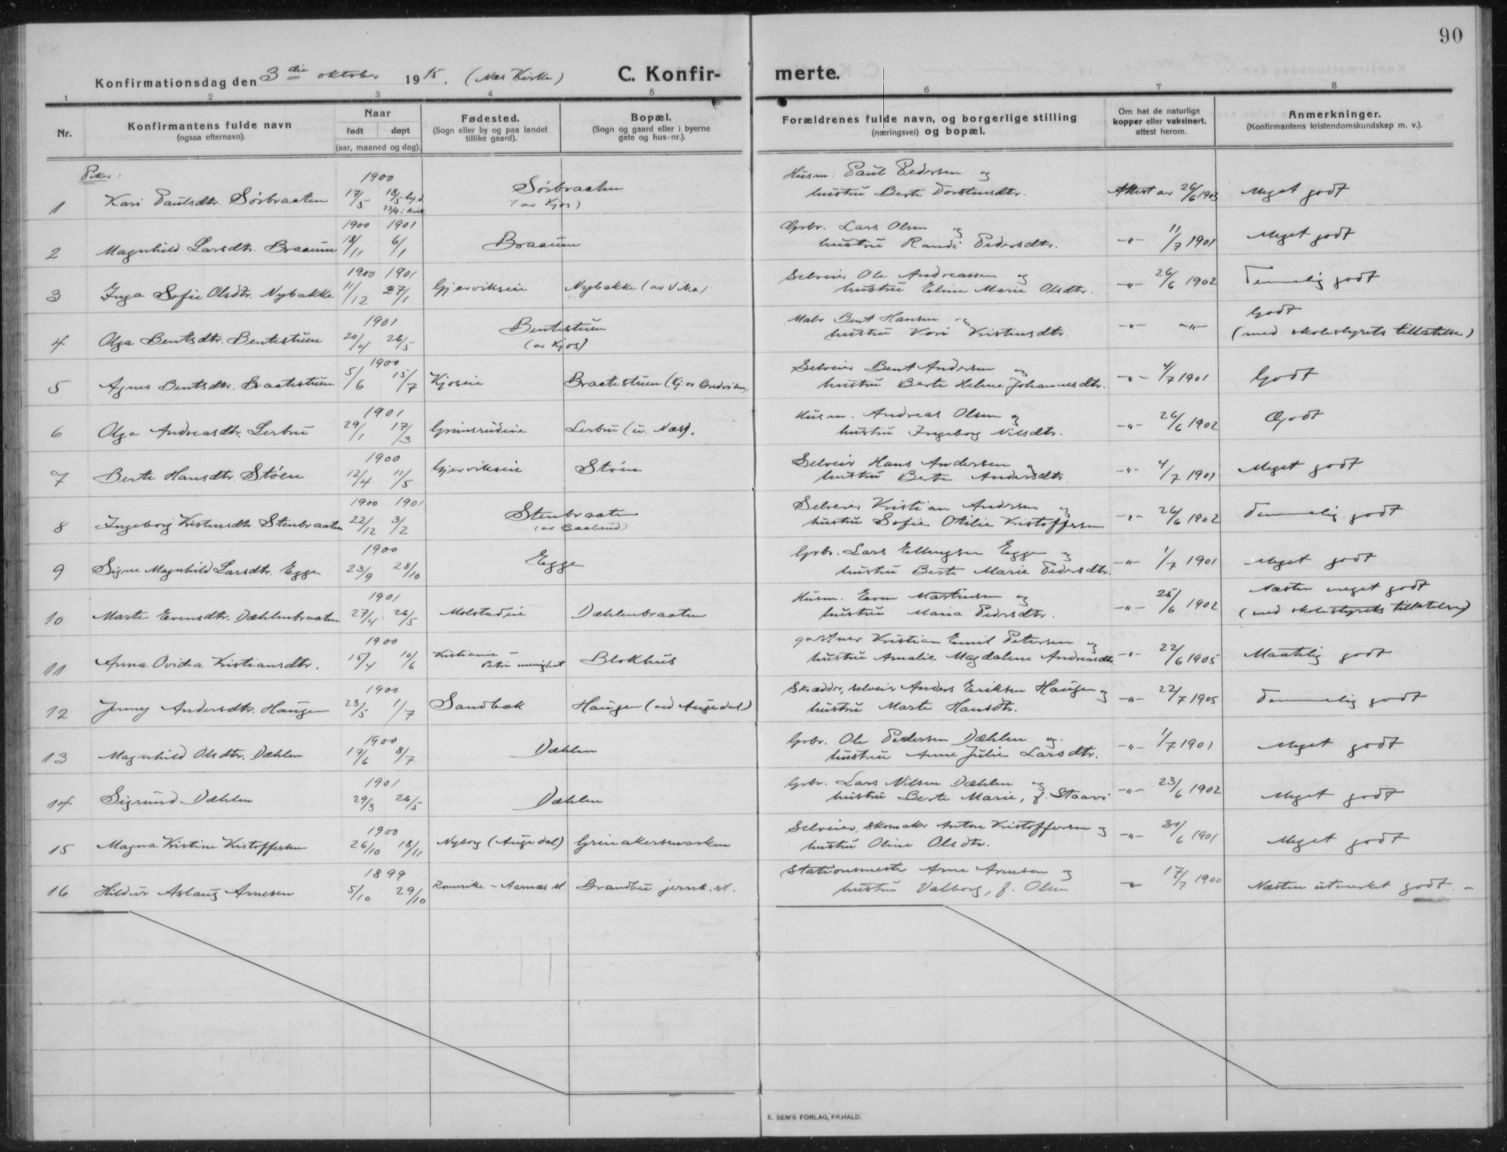 90
Konfirmationsdag den 3die oktober 1915. (Næs Kirke) C. Konfir- merte.
1 2 3 4 5 6 7 8
Nr. Konfirmantens fulde navn (ogsaa efternavn). Naar født døpt (aar, maaned og dag). Fødested. (Sogn eller by og paa landet tillike gaard). Bopæl. (Sogn og gaard eller i byerne gate og hus-nr.). Forældrenes fulde navn, og borgerlige stilling (næringsvei) og bopæl. Om hat de naturlige kopper eller vaksinert, attest herom. Anmerkninger. (Konfirmantens kristendomskundskap m. v.).
Piker:
1900
1 Kari Paulsdtr. Sørbraaten 17/5 18/5 Sørbraaten (av Kjos) Husm. Paul Pedersen og hustru Berte Torstensdtr. Attest av 26/6 1903 Meget godt
1900 1901
2 Magnhild Larsdtr. Braaum 6/1 Braaum Grbr. Lars Olsen og hustru Randi Pedersdtr. -"- 11/7 1901 Meget godt
1900 1901
3 Inga Sofie Olsdtr. Nybakke 11/12 27/1 Gjervikseie Nybakke (av Vika) Selveier Ole Andreassen og hustru Eline Marie Olsdtr. -"- 26/6 1902 Temmelig godt
1901
4 Olga Bentsdtr. Bentestuen 20/4 26/5 Bentestuen (av Kjos) Maler Bent Hansen og hustru Kari Kristensdtr. -"- -"- Godt (med skolestyrets tillatelse)
1900
5 Agnes Bentsdtr. Braatestuen 5/6 15/7 Kjoseie Braatestuen Selveier Bent Andersen og hustru Berte Helene Johannesdtr. -"- 4/7 1901 Godt
1901
6 Olga Andreasdtr. Lerbru 29/1 17/3 Grinisrudeie Lerbru (u. Næs). Husm. Andreas Olsen og hustru Ingeborg Nilsdtr. -"- 26/6 1902 Godt
1900
7 Berte Hansdtr. Støen 12/4 11/5 Gjervikseie Støen Selveier Hans Andersen og hustru Berte Andersdtr. -"- 4/7 1901 Meget godt
1900 1901
8 Ingeborg Kristensdtr. Stenbraaten 22/12 3/2 Stenbraaten Selveier Kristian Andersen og hustru Sofie Otilie Kristoffersen -"- 26/6 1902 Temmelig godt
1900
9 Signe Magnhild Larsdtr. Egge 23/9 28/10 Egge Grbr. Lars Ellingsen Egge og hustru Berte Marie Pedersdtr. -"- 1/7 1901 Meget godt
1901
10 Marte Evensdtr. Dæhlenbraaten 27/4 26/5 Molstadeie Dæhlenbraaten Husm. Even Martinsen og hustru Maria Pedersdtr. -"- 25/6 1902 Næsten meget godt (med skolestyrets tillatelse)
1900
11 Anna Ovidia Kristiansdtr. 15/4 10/6 Kristiania - Petri menighet Blokhus gartner Kristian Emil Petersen og hustru Amalie Magdalene Andreasdtr. -"- 22/6 1905 Maatelig godt
1900
12 Jenny Andersdtr. Haugen 23/5 1/7 Sandbæk Haugen (ved Augedal) Skrædder, selveier Anders Eriksen Haugen og hustru Marte Hansdtr. -"- 22/7 1905 Temmelig godt
1900
13 Magnhild Olsdtr. Dæhlen 17/6 8/7 Dæhlen Grbr. Ole Pedersen Dæhlen og hustru Anne Julie Larsdtr. -"- 1/7 1901 Meget godt
1901
14 Sigrund Dæhlen 29/3 26/5 Dæhlen Grbr. Lars Nilsen Dæhlen og hustru Berte Marie, f. Staavi -"- 23/6 1902 Meget godt
1900
15 Magna Kristine Kristoffersen 26/10 18/11 Nybog (Augedal) Grinakersmarken Selveier, skomaker Anton Kristoffersen og hustru Oline Olsdtr. -"- 30/6 1901 Meget godt
1899
16 Hildur Aslaug Arnesen 5/10 29/10 Romerike - Aarnæs st. Brandbu jernb. st. Stationsmester Arne Arnesen og hustru Valborg, f. Olsen -"- 17/7 1900 Næsten utmerket godt. -
E. SEM'S FORLAG, FR.HALD.